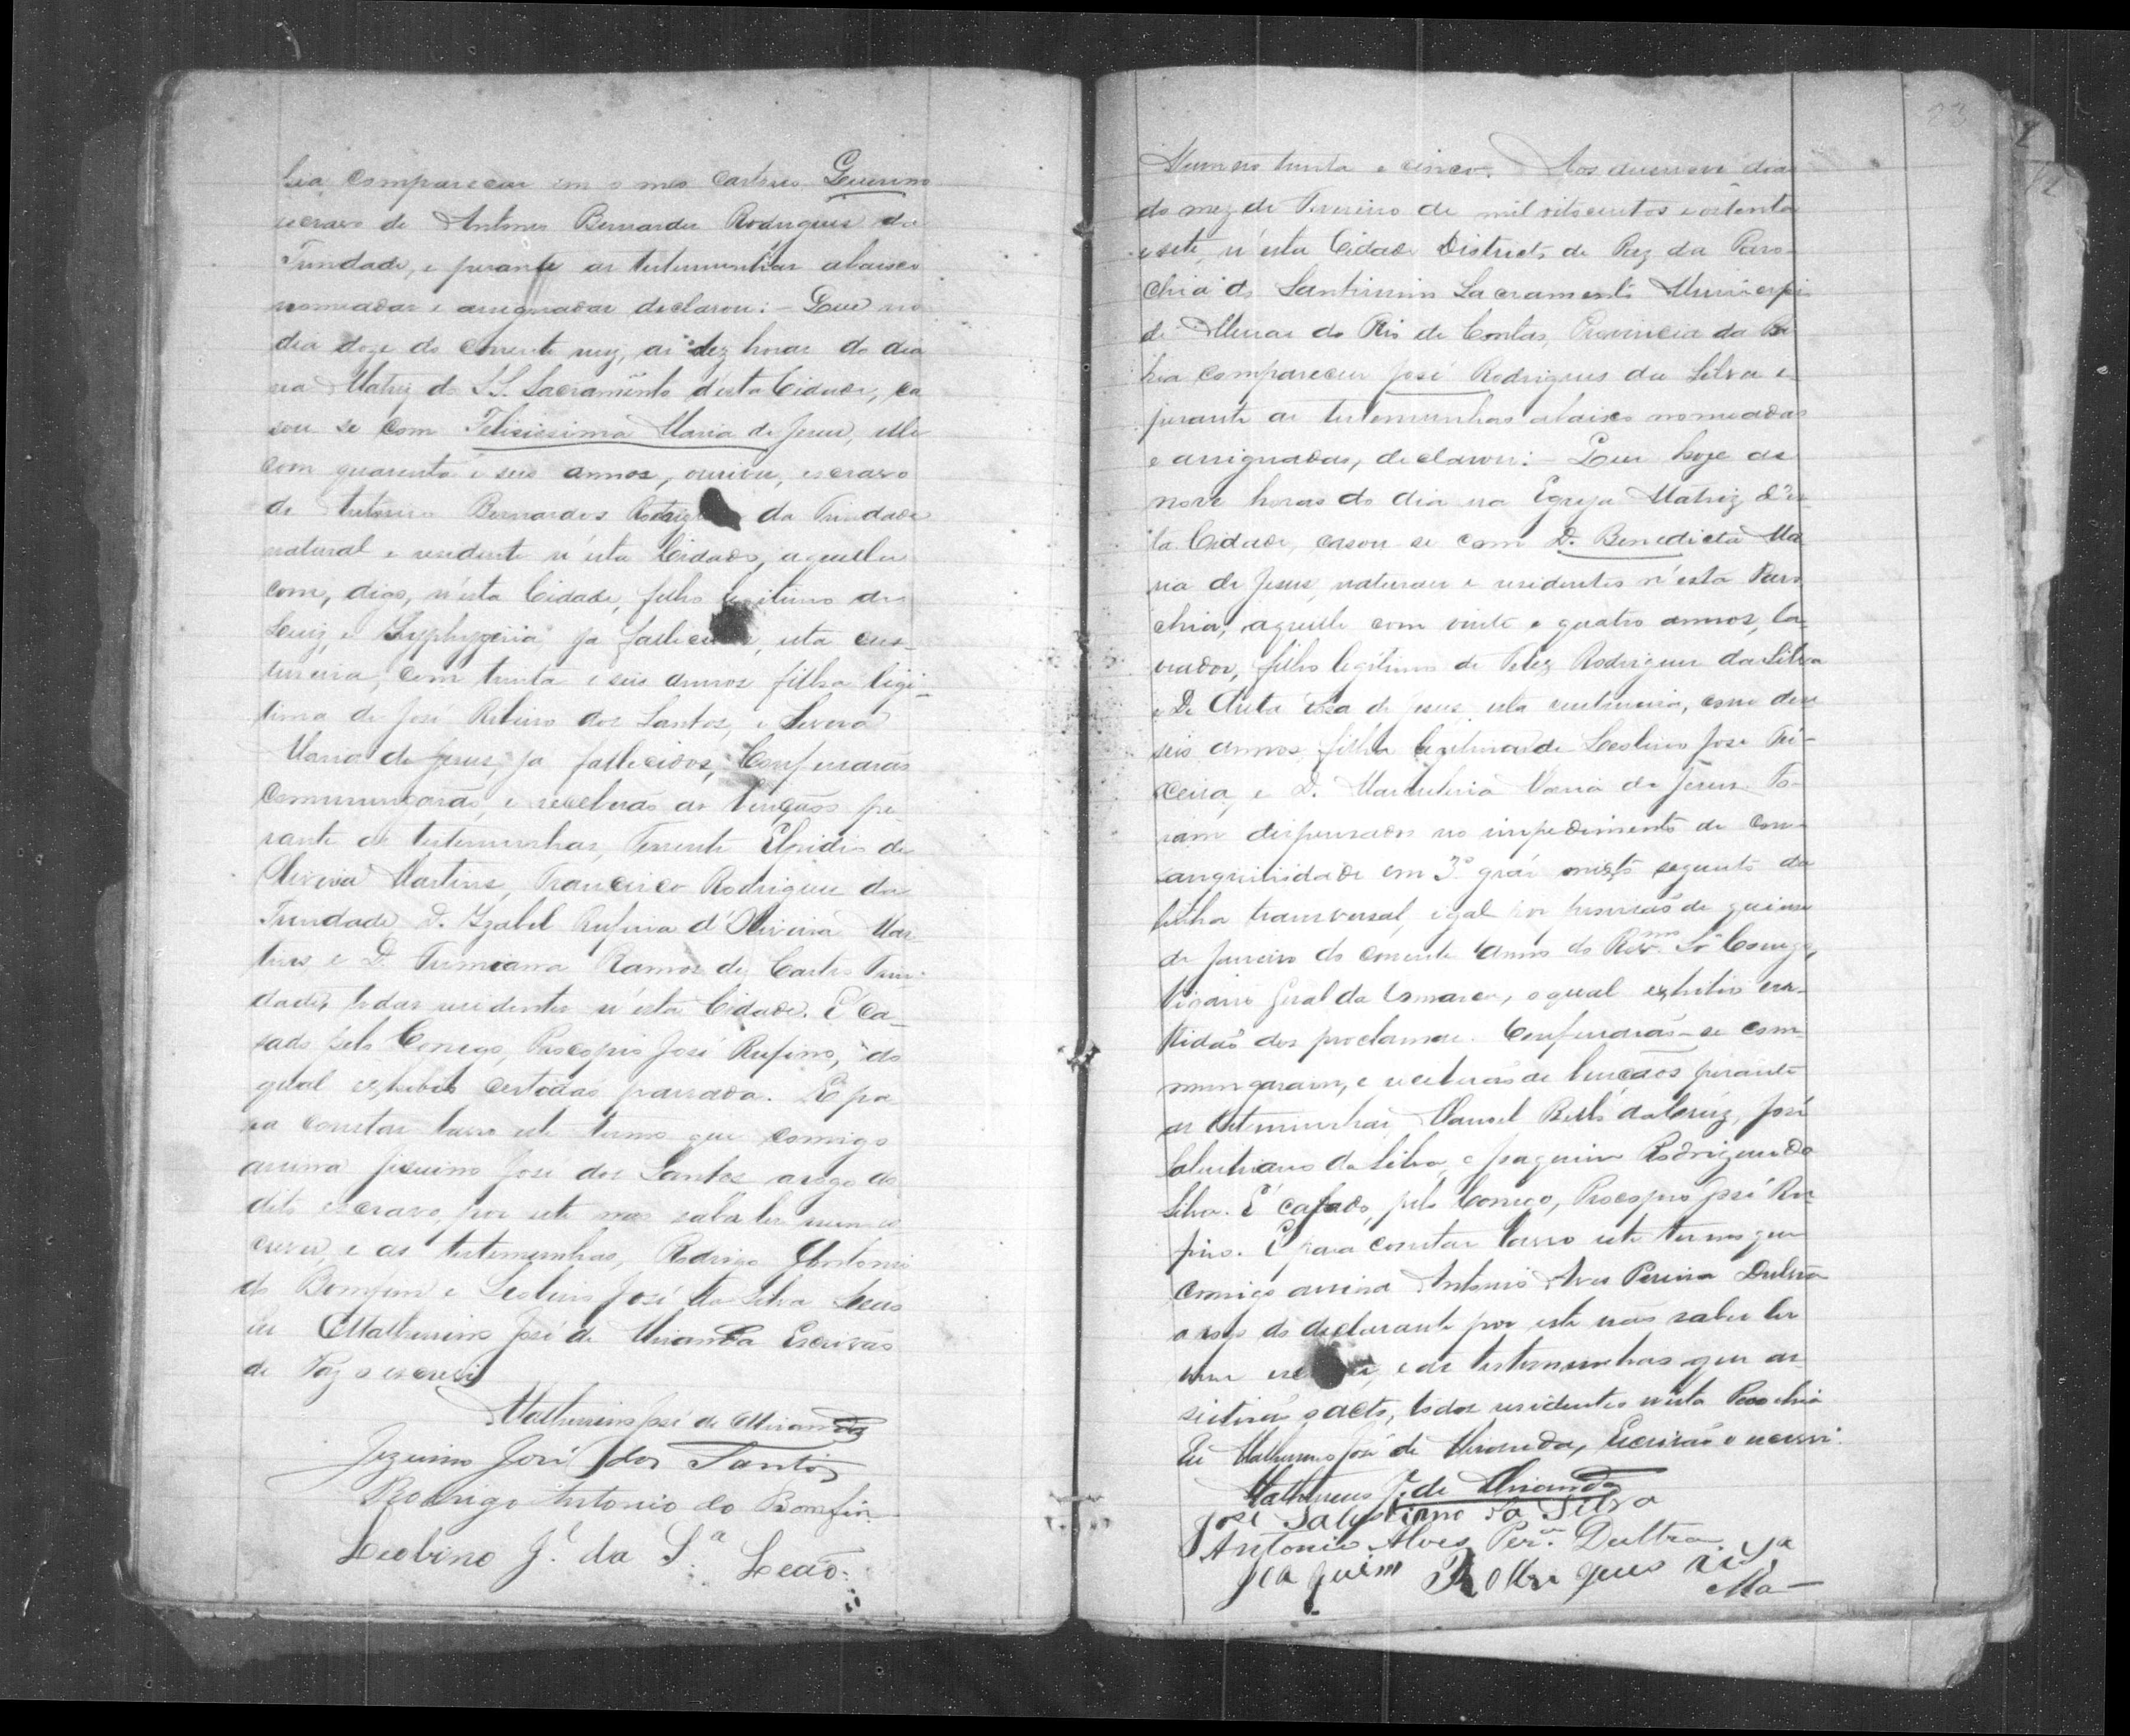 hia, compareceu em o meo Cartorio Guerino
escravo de Antonio Bernardes Rodrigues da
Trindade, e perante as testemunhas abaixo
nomeadas e assignadas declarou: - Que no
dia doze do corrente mez, as dez horas do dia
na Matriz do S.S. Sacramento d'esta Cidade, ca
sou se com Felicissima Maria de Jesus, elle
com quarenta e seis annos, ourives, escravo
de Antonio Bernardes da Trindade
natural e residente n'esta Cidade, aquella
com, digo, n'esta Cidade, filho legitimo de
Luiz, e ja, esta cus-
tureira, com trinta e seis annos filha legi-
tima de José Ribeiro dos Santos, e Severa
Maria de Jesus, ja fallecidos, Confessarás
comumgarás, e receberás as bençãos pe
rante as testemunhas, Tenente Elsidio de
Oliveira Martins, Francisco Rodrigues da
Trindade D. Izabel Rufina d'Oliveira Mar
tins e D. Ramos de Castro Trin-
dade, todas residentes n'esta Cidade. É ca-
sado pelo Conego, Procopio José Rufino, do
qual exhibio Certidão passada. E pa
ra constar lavro este termo que comigo
assina Jizuino José dos Santos arogo do
dito escravo, por este não saber ler nem es
crever, e as testemunhas, Rodrigo Antonio
do Bomfim e Leolino José da Silva Leão
Eu Mathurino José de Miranda Escrivão
de Paz o escrevi
Mathurino José de Miranda
Jezuino José dos Santos
Rodrigo Antonio do Bomfim
Leolvino J.é da S.a Leão.
Numero trinta e cinco. Aos desenove dias
do mez de Fevereiro de mil oitocentos e oitenta
e sete, n'esta Cidade Districto de Paz da Paro-
chia do Santissimo Sacramento Municipio
de Minas do Rio de Contas, Provincia da Ba
hia compareceu José Rodrigues da Silva e
perante as testemunhas abaixo nomeadas
e assignadas, declarou: - Que hoje as
nove horas do dia na Egreja Matriz d'es-
ta Cidade, casou se com D. Benedicta Ma
ria de Jesus, naturaes e residentes n'esta Paro
chia, aquelle com vinte e quatro annos, la
vrador, filho legitimo de Felez Rodrigues da Silva
e D. de Jesus esta custureira, com deze
seis annos filha legitima de Leolino José Tei-
xeira, e D. Maria de Jesus. Fo-
ram dispensados no impedimento de con-
sanguinidade em 3.º gráo misto segunto da
linha transversal, igal por de quinse
de Janeiro do corrente anno do Rev.mo Sr. Conego,
Vigario Geral da Comarca, o qual exhibio cer-
tidão dos proclamas. Confessarás-se com-
mungaram, e receberás as bençãos perante
as testemunhas Manoel da Cruz, José
Salustiano da Silva, e Joaquim Rodrigues da
Silva. É casado, pelo Conego, Procopio José Ru
fino. E para constar lavro este termo que
comigo assina Antonio Alves Pereira Dultra
a rogo do declarante por este não saber ler
nem, e as testemunhas que as
sistirão o acto, todos residentes n'esta Parochia
Eu Mathurino José de Miranda, Escrivão o escrevi.
Mathurino J. de Miranda
José Salustiano da Silva
Antonio Alves Per.a Dultra
Joaquim Rodrigues
Ma-